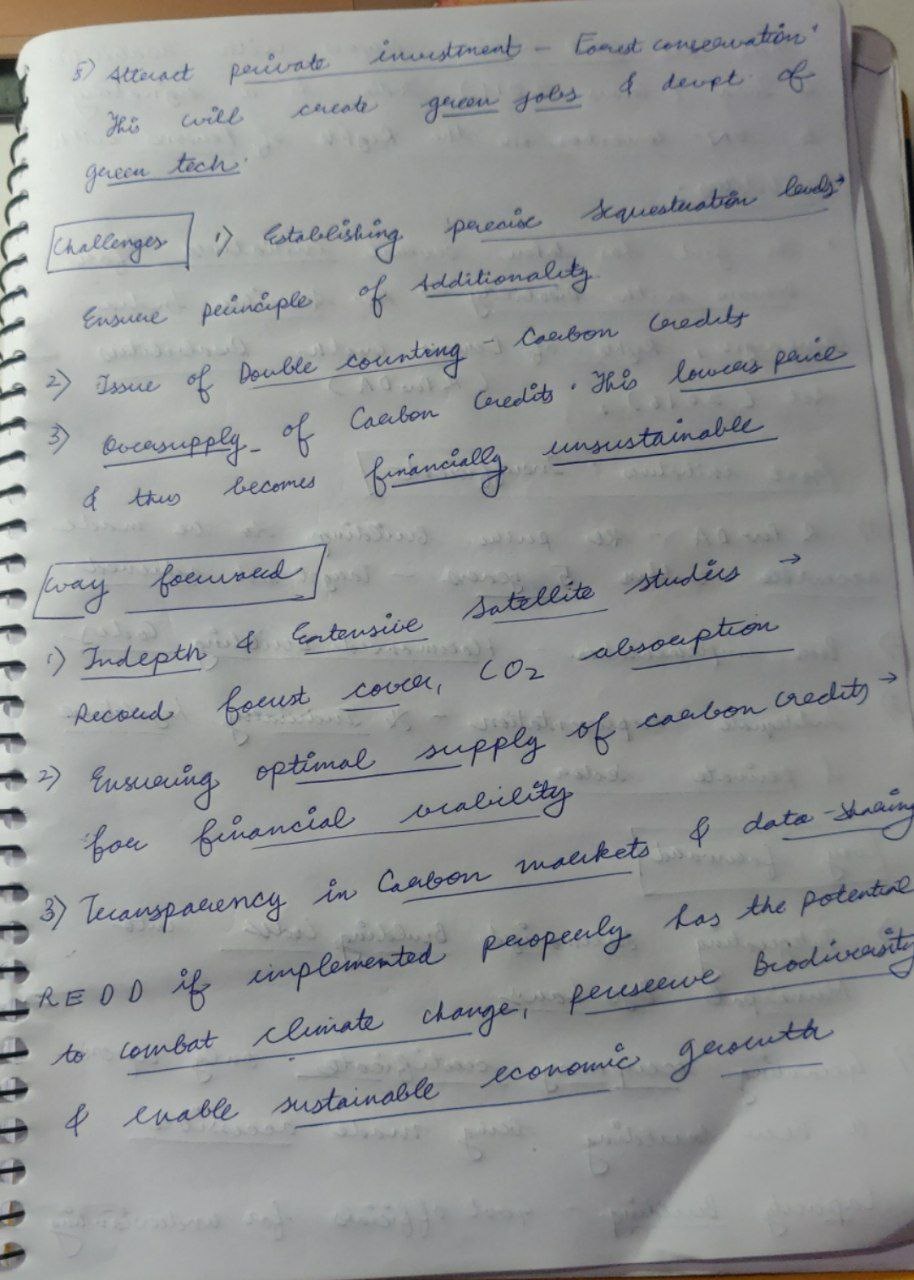 5) Attract private investment - Forest conservation.
This will create green jobs & devpt. of
green tech.
Challenges 1) Establishing precise sequestration levels →
Ensure principle of Additionality
2) Issue of Double counting - Carbon credits
3) Oversupply - of Carbon Credits. This lowers price
& thus becomes financially unsustainable
Way forward
1) Indepth & Extensive satellite studies →
Record forest cover, CO2 absorption
2) Ensuring optimal supply of carbon credits →
for financial viability
3) Transparency in Carbon markets & data-sharing
REDD if implemented properly has the potential
to combat climate change, preserve Biodiversity
& enable sustainable economic growth